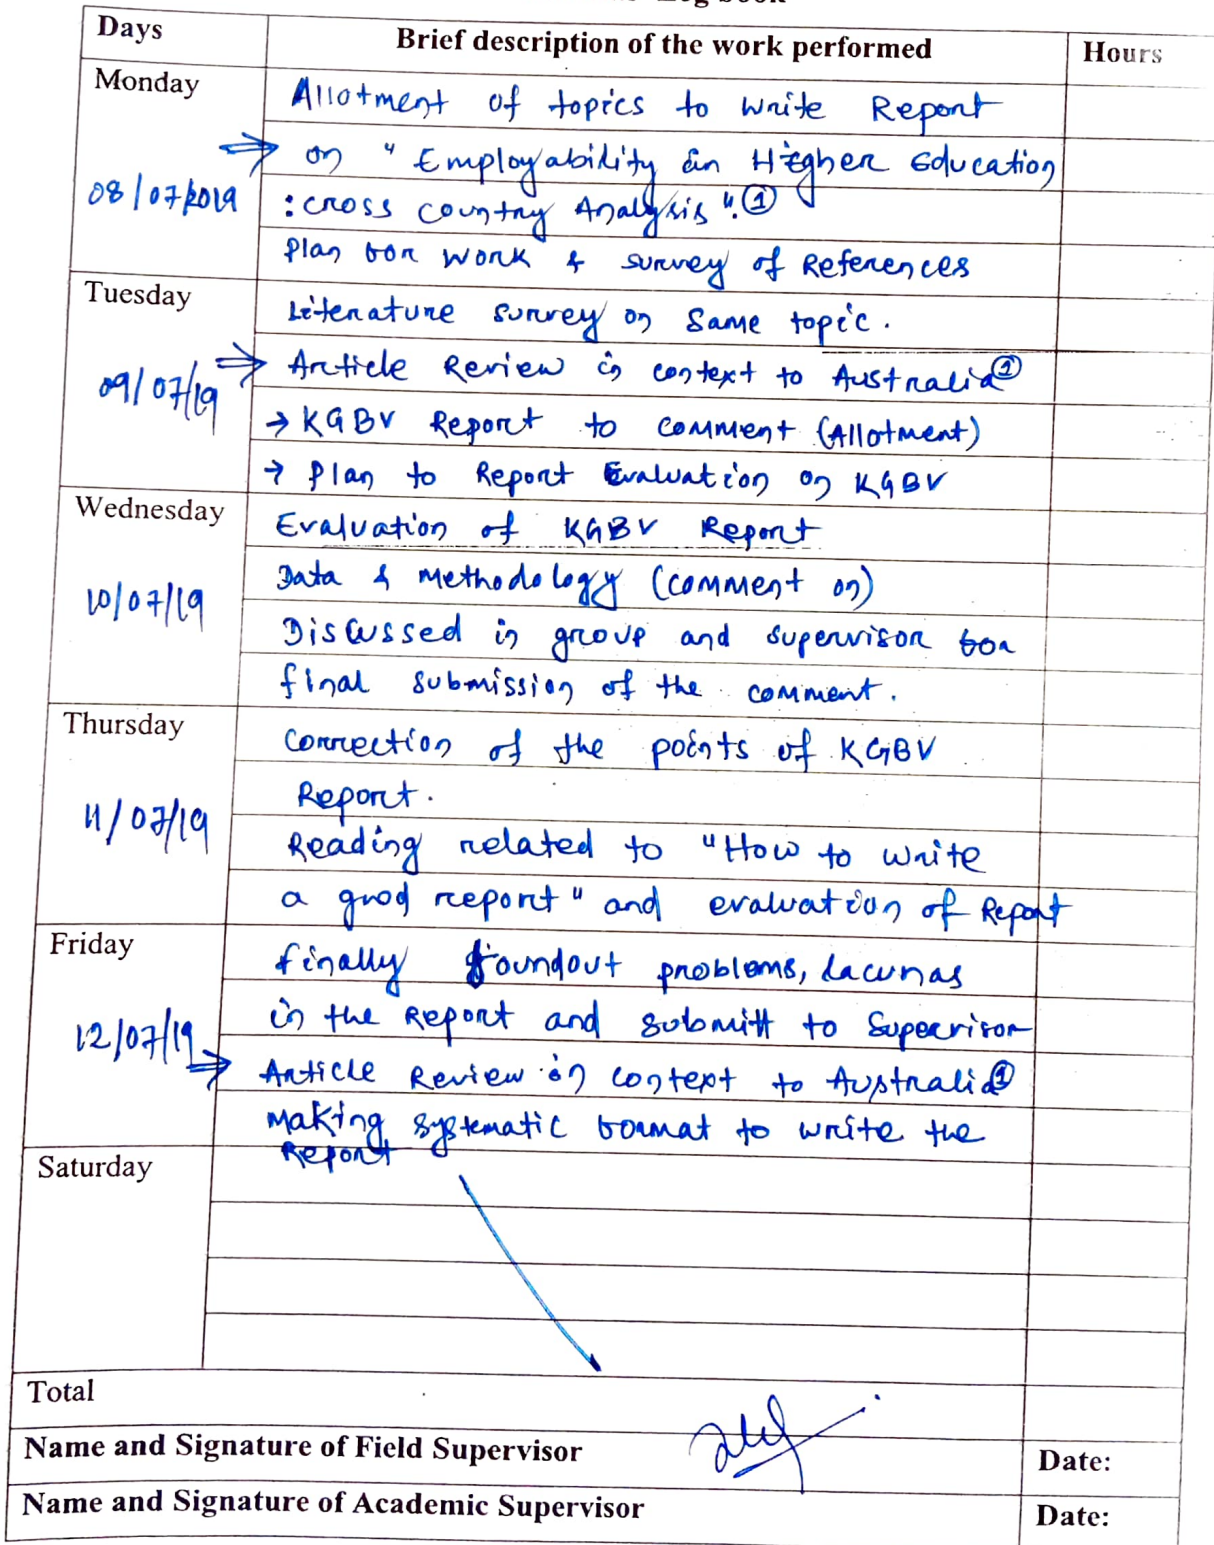 Log book
Days Brief description of the work performed Hours
Monday
Allotment of topics to write Report
⇒ on "Employability in Higher Education
08/07/2019
: cross country Analysis". ①
Plan for work & survey of References
Tuesday
Literature survey on same topic.
⇒ Article Review in context to Australia ①
09/07/19
→ KGBV Report to comment (Allotment)
→ Plan to Report Evaluation on KGBV
Wednesday
Evaluation of KGBV Report
10/07/19
Data & Methodology (comment on)
Discussed in group and supervisor for
final submission of the comment.
Thursday
Correction of the points of KGBV
Report.
11/07/19
Reading related to "How to write
a good report" and evaluation of Report
Friday
finally foundout problems, Lacunas
12/07/19
in the Report and submitt to Supervisor
⇒ Article Review in context to Australia ①
Making systematic format to write the
Report
Saturday
Total
Name and Signature of Field Supervisor Date:
Name and Signature of Academic Supervisor Date: